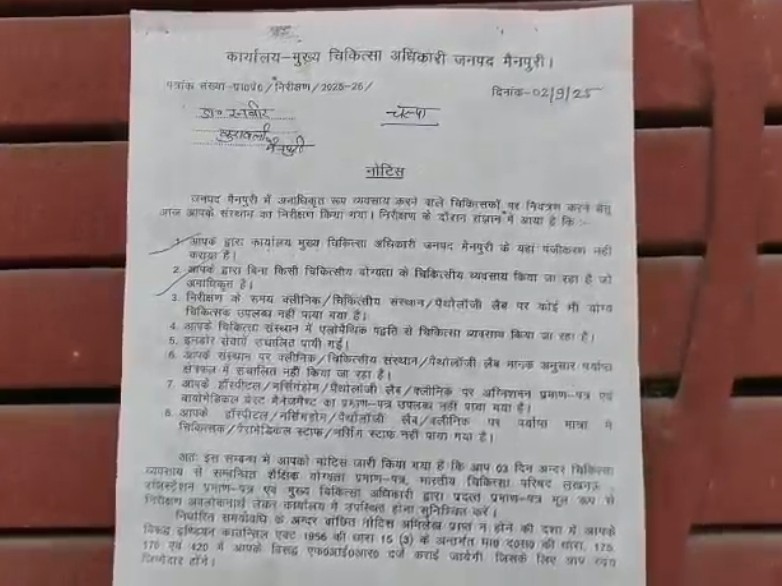 कार्यालय–मुख्य चिकित्सा अधिकारी जनपद मैनपुरी।
पत्रांक संख्या-प्रा0चि0/निरीक्षण/2025-26/
दिनांक-02/9/25
डा० रनवीर
कुरावली
मैनपुरी
चस्पा
नोटिस
जनपद मैनपुरी में अनाधिकृत रूप व्यवसाय करने वाले चिकित्सकों पर नियंत्रण करने हेतु
आज आपके संस्थान का निरीक्षण किया गया। निरीक्षण के दौरान संज्ञान में आया है कि :-
1. आपके द्वारा कार्यालय मुख्य चिकित्सा अधिकारी जनपद मैनपुरी के यहां पंजीकरण नहीं
कराया है।
2. आपके द्वारा बिना किसी चिकित्सीय योग्यता के चिकित्सीय व्यवसाय किया जा रहा है जो
अनाधिकृत है।
3. निरीक्षण के समय क्लीनिक/चिकित्सीय संस्थान/पैथोलॉजी लैब पर कोई भी योग्य
चिकित्सक उपलब्ध नहीं पाया गया है।
4. आपके चिकित्सा संस्थान में एलोपैथिक पद्वति से चिकित्सा व्यवसाय किया जा रहा है।
5. इनडोर सेवायें संचालित पायी गई।
6. आपके संस्थान पर क्लीनिक/चिकित्सीय संस्थान/पैथोलॉजी लैब मानक अनुसार पर्याप्त
क्षेत्रफल में संचालित नहीं किया जा रहा है।
7. आपके हॉस्पीटल/नर्सिंगहोम/पैथोलॉजी लैब/क्लीनिक पर अग्निशमन प्रमाण-पत्र एवं
बायोमेडिकल वेस्ट मैनेजमेण्ट का प्रमाण-पत्र उपलब्ध नहीं पाया गया है।
8. आपके हॉस्पीटल/नर्सिंगहोम/पैथोलॉजी लैब/क्लीनिक पर पर्याप्त मात्रा में
चिकित्सक/पैरामेडिकल स्टाफ/नर्सिंग स्टाफ नहीं पाया गया है।
अतः इस सम्बन्ध में आपको नोटिस जारी किया गया है कि आप 03 दिन अन्दर चिकित्सा
व्यवसाय से सम्बन्धित शैक्षिक योग्यता प्रमाण-पत्र, भारतीय चिकित्सा परिषद लखनऊ
रजिस्ट्रेशन प्रमाण-पत्र एवं मुख्य चिकित्सा अधिकारी द्वारा प्रदत्त प्रमाण-पत्र मूल रूप से
निरीक्षण अवलोकनार्थ लेकर कार्यालय में उपस्थित होना सुनिश्चित करें।
निर्धारित समयावधि के अन्दर वांछित नोटिस अभिलेख प्राप्त न होने की दशा में आपके
विरूद्ध इण्डियन काउन्सिल एक्ट 1956 की धारा 15 (3) के अन्तर्गत भा0 द0स0 की धारा, 175,
176 एवं 420 में आपके विरूद्ध एफ0आई0आर0 दर्ज कराई जायेगी जिसके लिए आप स्वयं
जिम्मेदार होंगे।